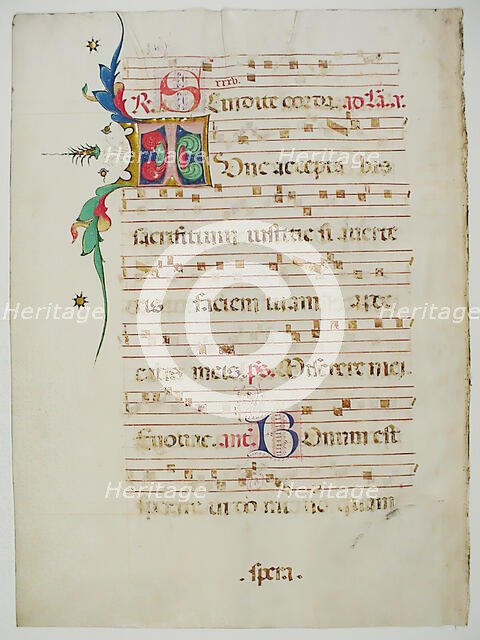 xxxv.
R. Scindite corda. ad La. x.
Tunc accepta bis
sacrifitium iustitie si averte
ris faciem tuam a pec
catis meis. ps. Miserere mei.
Euouae. ant. Bonum est
quam
Heritage Heritage
Heritage Heritage Heritage
Heritage Heritage